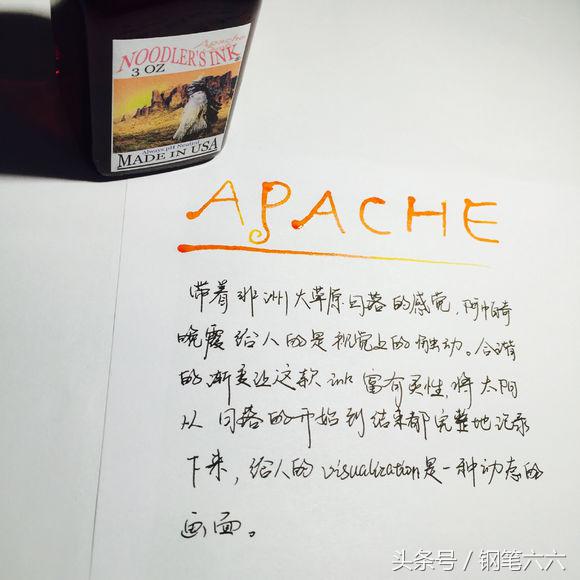 Apache
NOODLER'S INK
3 OZ
Always pH Neutral
MADE IN USA
APACHE
带着非洲大草原日落的感觉，阿帕奇
晚霞给人的是视觉上的触动。合谐
的渐变让这款ink富有灵性，将太阳
从日落的开始到结束都完整地记录
下来，给人的visualization是一种动态的
画面。
头条号 / 钢笔六六